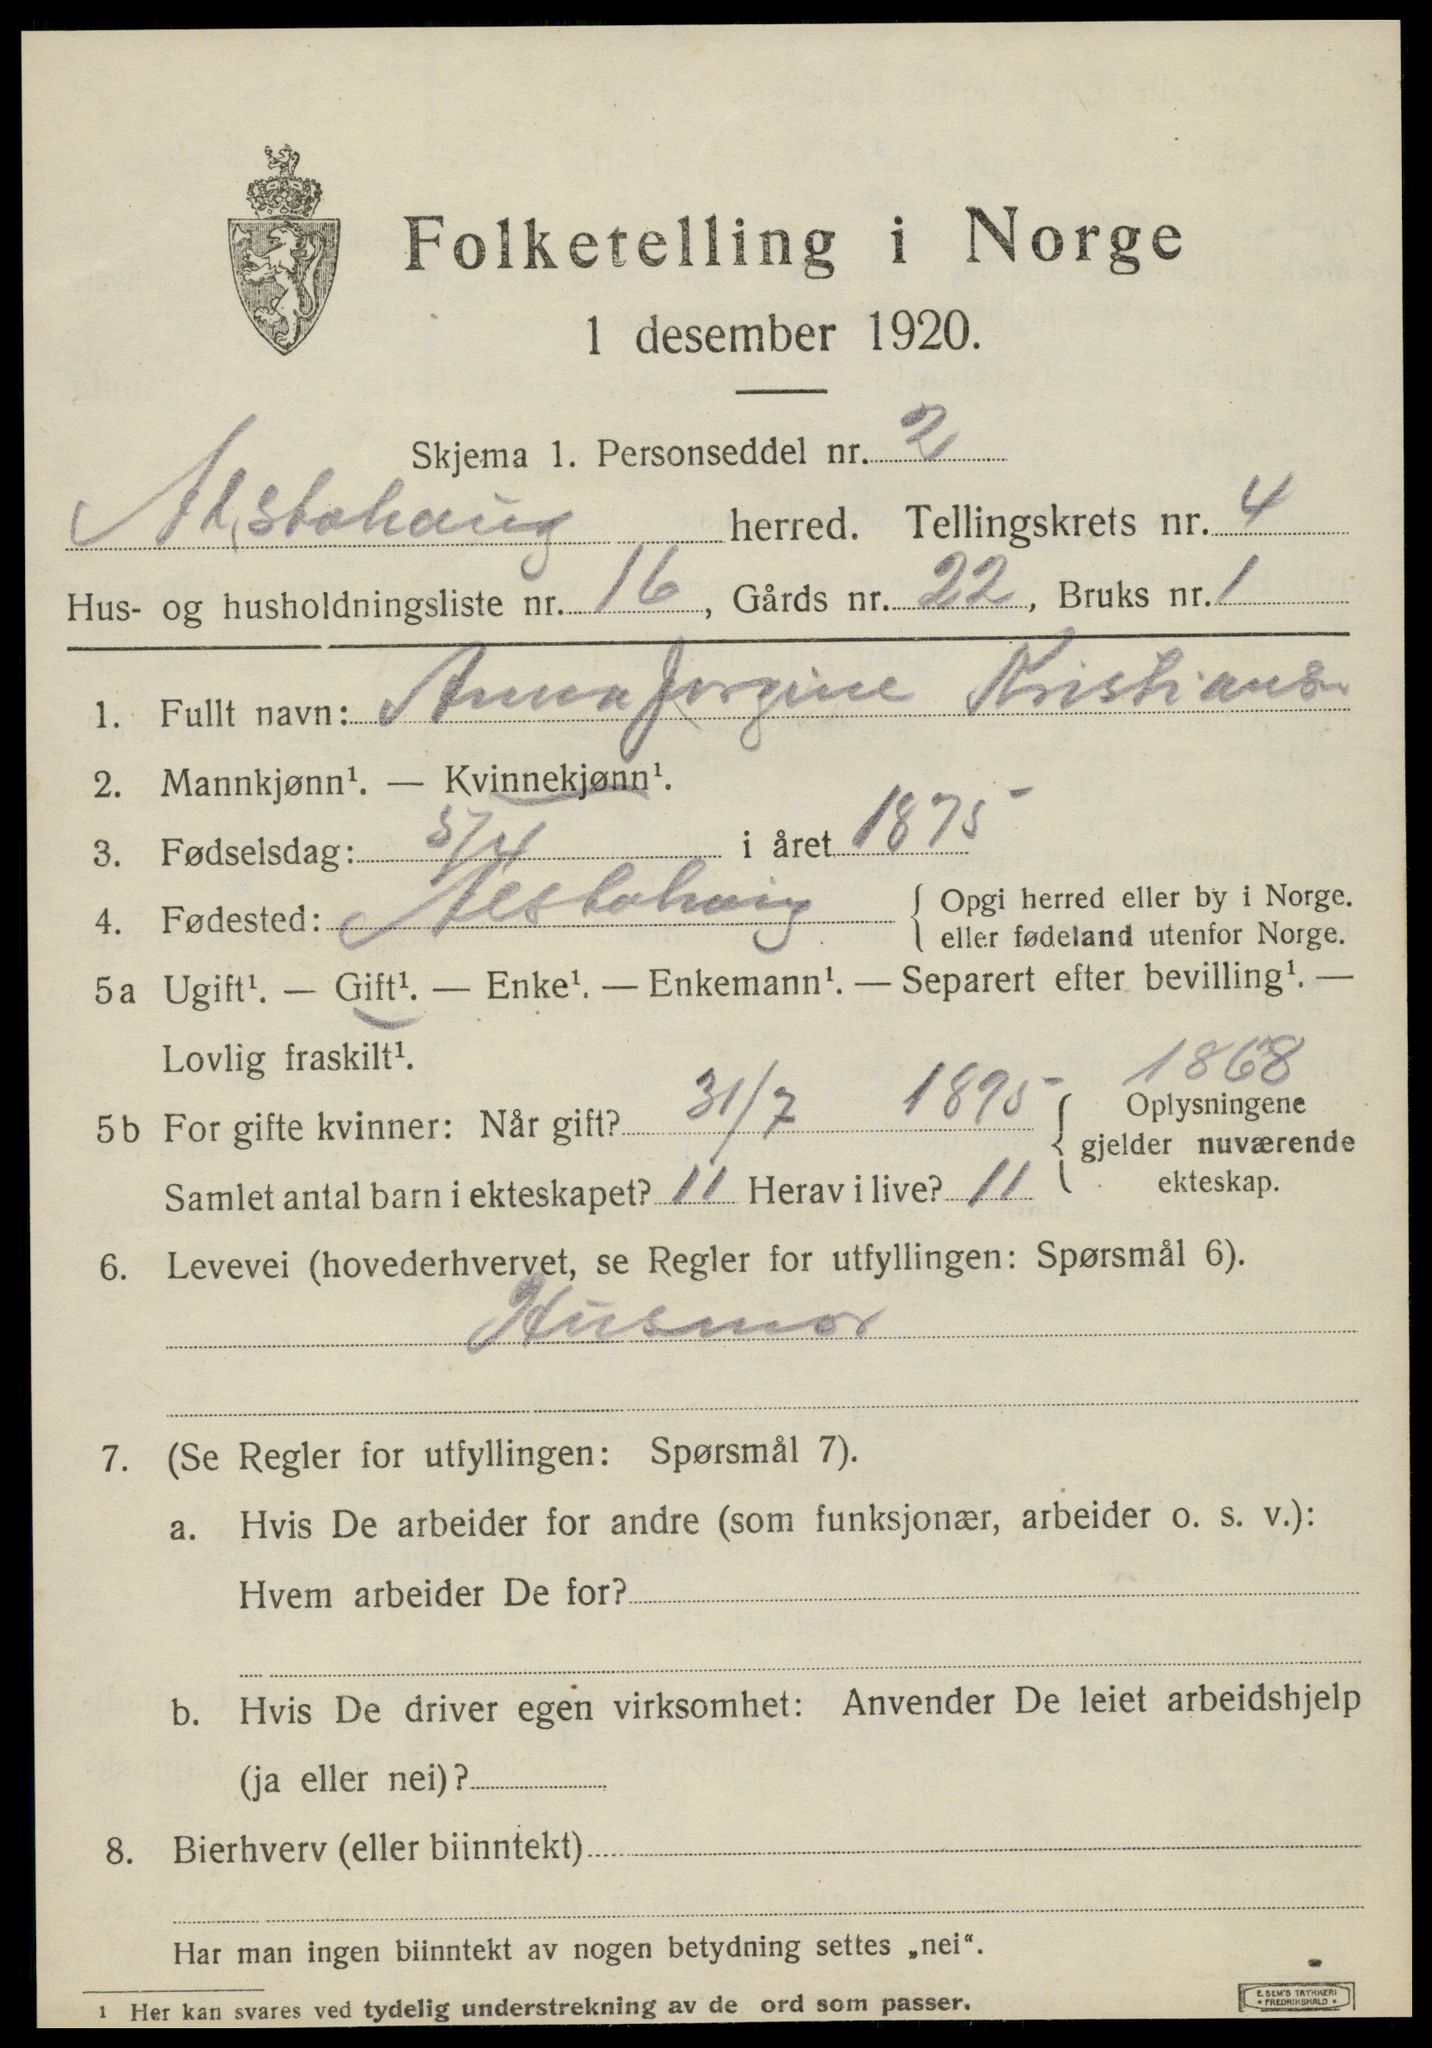 Folketelling i Norge
1 desember 1920.
Skjema 1. Personseddel nr. 2
Alstahaug herred. Tellingskrets nr. 4
Hus- og husholdningsliste nr. 16, Gårds nr. 22, Bruks nr. 1
1. Fullt navn: Anna Jorgine Kristians.
2. Mannkjønn¹. — Kvinnekjønn¹.
3. Fødselsdag: 5/4 i året 1875
4. Fødested: Alstahaug { Opgi herred eller by i Norge.
eller fødeland utenfor Norge.
5a Ugift¹. — Gift¹. — Enke¹. — Enkemann¹. — Separert efter bevilling¹. —
Lovlig fraskilt¹.
1868
5b For gifte kvinner: Når gift? 31/7 1895 { Oplysningene
gjelder nuværende
ekteskap.
Samlet antal barn i ekteskapet? 11 Herav i live? 11
6. Levevei (hovederhvervet, se Regler for utfyllingen: Spørsmål 6).
Husmor
7. (Se Regler for utfyllingen: Spørsmål 7).
a. Hvis De arbeider for andre (som funksjonær, arbeider o. s. v.):
Hvem arbeider De for?
b. Hvis De driver egen virksomhet: Anvender De leiet arbeidshjelp
(ja eller nei)?
8. Bierhverv (eller biinntekt)
Har man ingen biinntekt av nogen betydning settes „nei“.
¹ Her kan svares ved tydelig understrekning av de ord som passer.
E. SEM'S TRYKKERI
• FREDRIKSHALD •